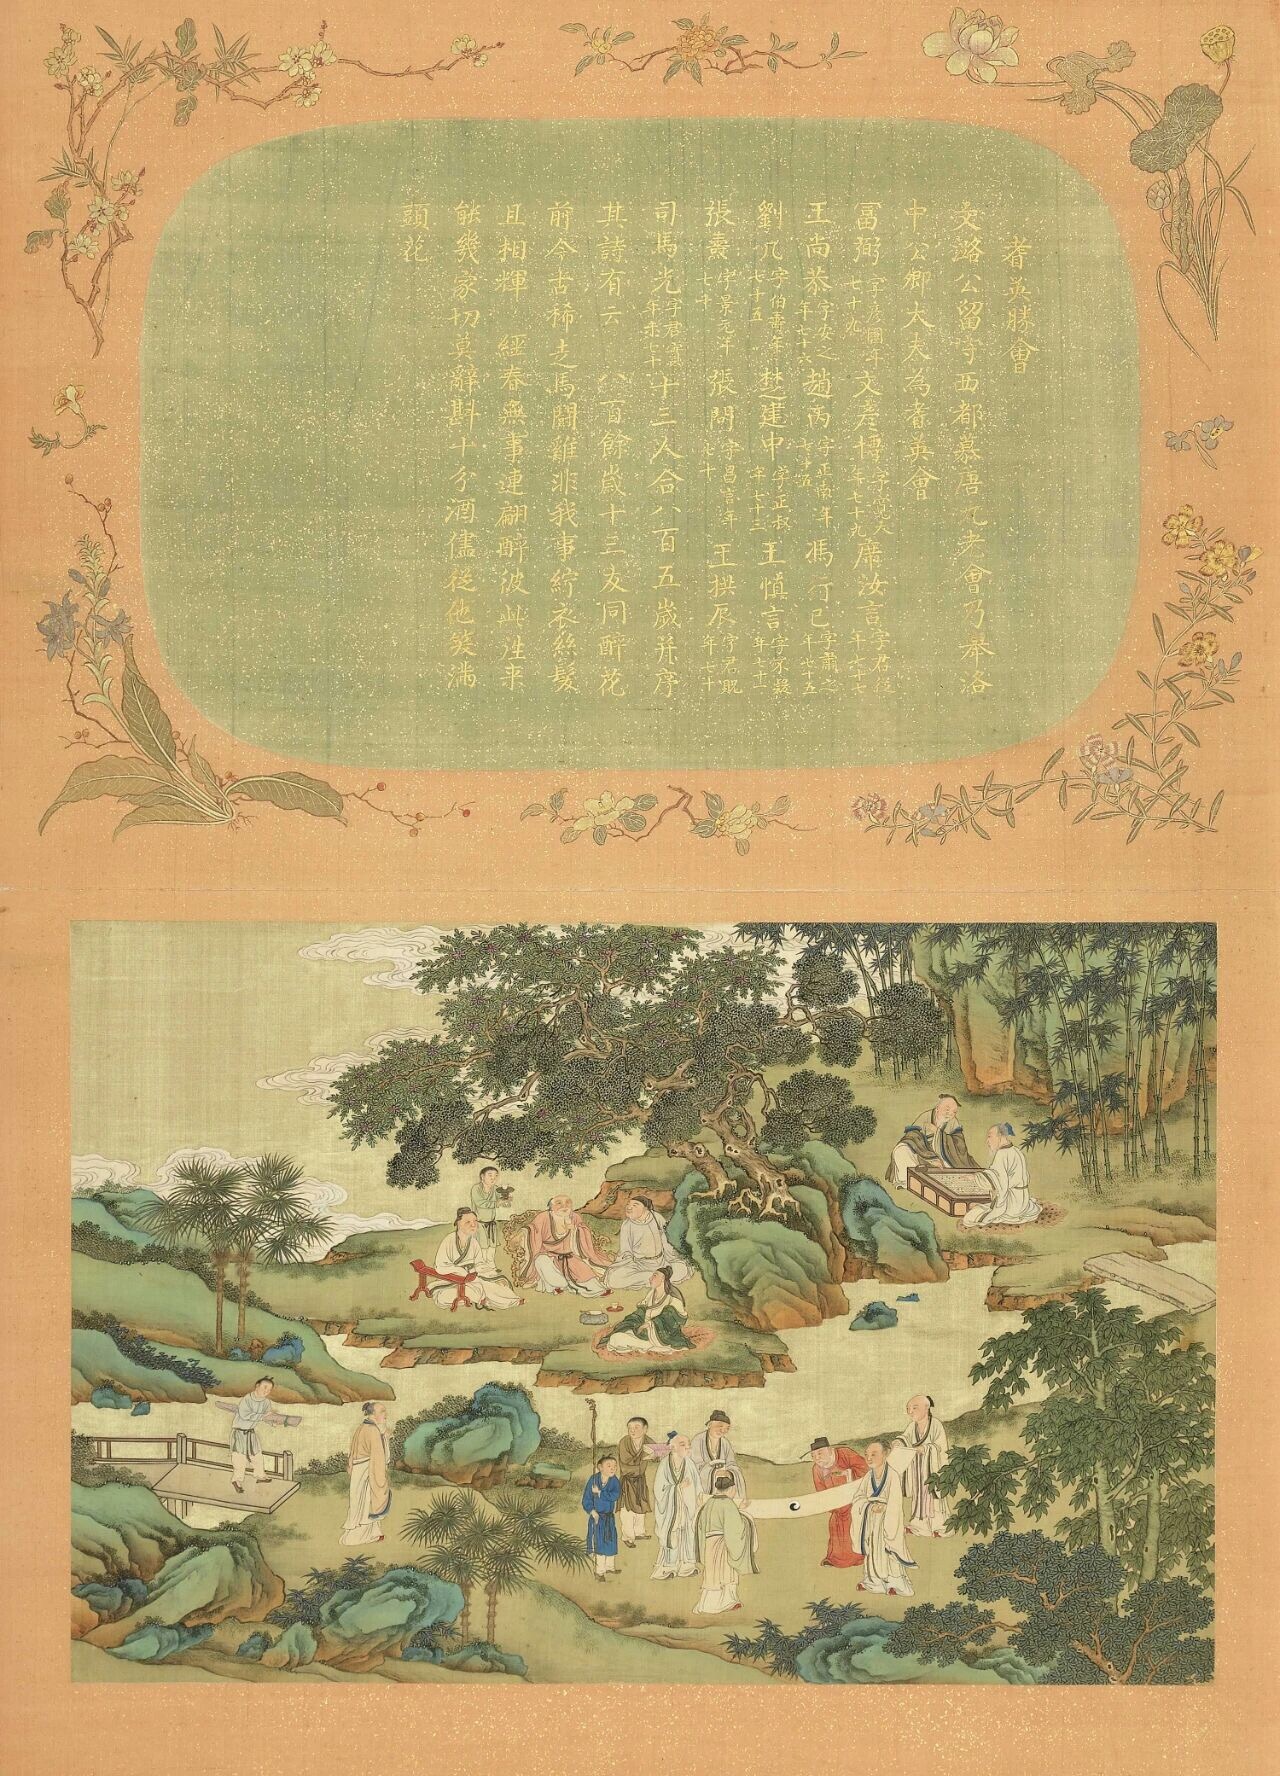 耆英勝會
文潞公留守西都慕唐九老會乃集洛
中公卿大夫為耆英會
富弼字彥國年七十九文彥博字寬夫年七十九席汝言字君從年七十七
王尚恭字安之年七十六趙丙字正南年七十五馮行己字肅之年七十五
劉几字伯壽年七十五楚建中字正叔年七十三王慎言字不疑年七十二
張燾字景元年七十張問字昌言年七十王拱辰字君貺年七十
司馬光字君實年未七十十三人合八百五歲并序
其詩有云 八百餘歲十三友同醉花
前今古稀走馬鬪雞非我事紵衣絲髮
且相輝 經春無事連翩醉彼此往來
能幾家切莫辭斟十分酒儘從他笑滿
頭花